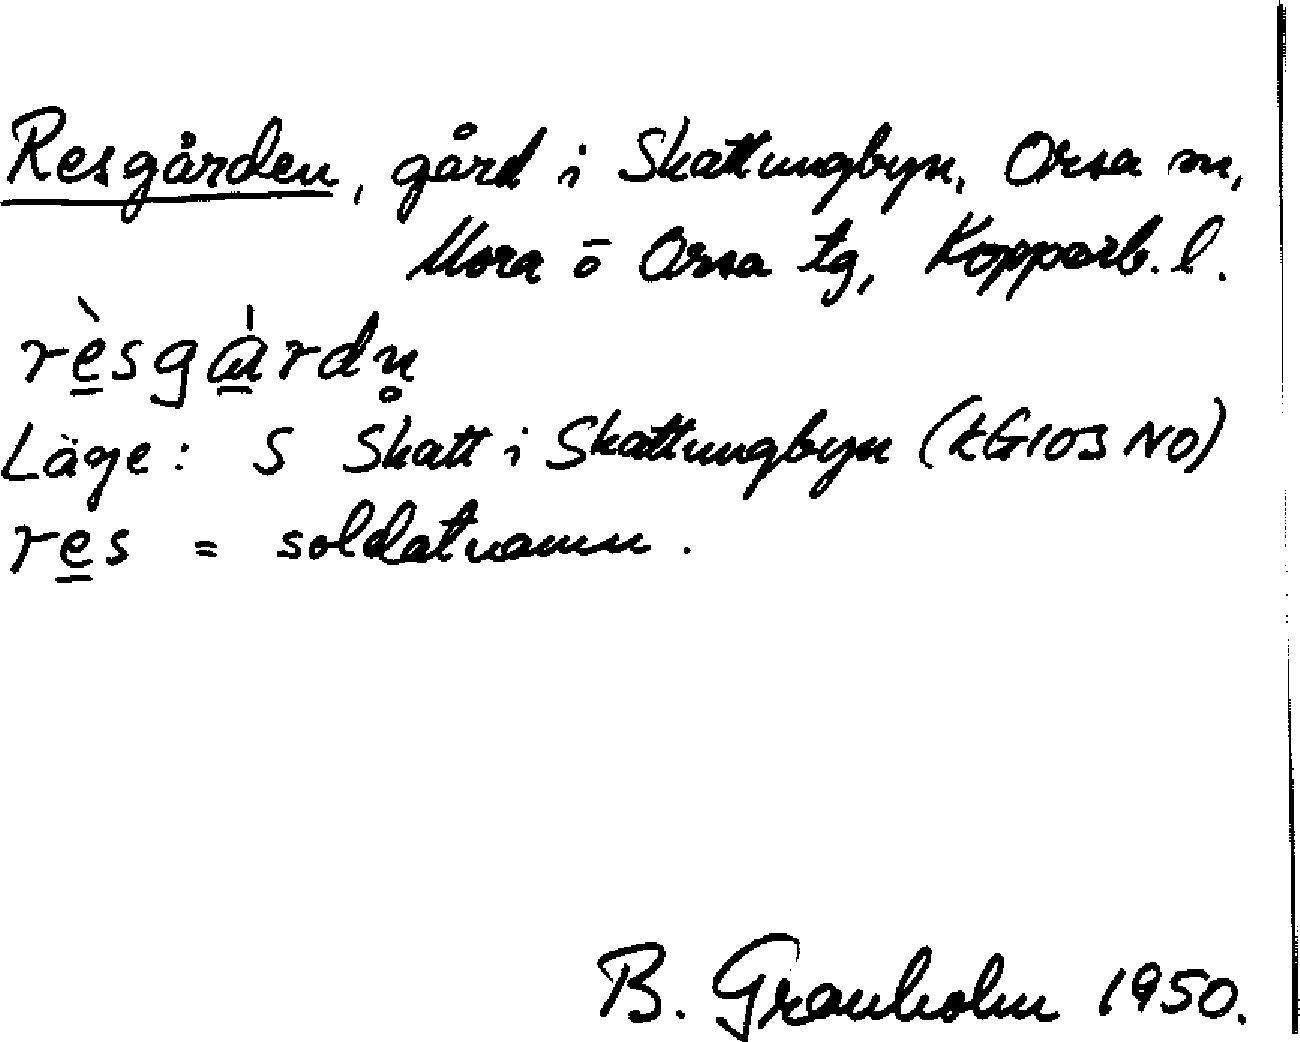 Resgården, gård i Skattungbyn, Orsa sn,
Mora o Orsa tg, Kopparb. l.
rèsgárdn̥
Läge: S Skatt i Skattungbyn (kG103 NO)
res = soldatnamn.
B. Granholm 1950.